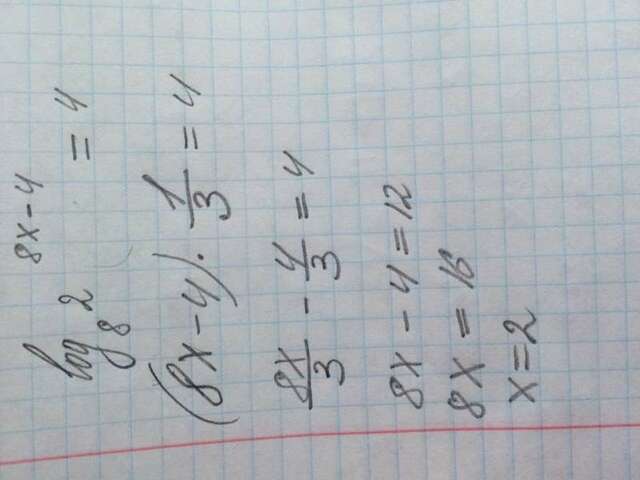 log₈ 2^(8x-4) = 4
(8x-4) · 1/3 = 4
8x/3 - 4/3 = 4
8x - 4 = 12
8x = 16
x = 2